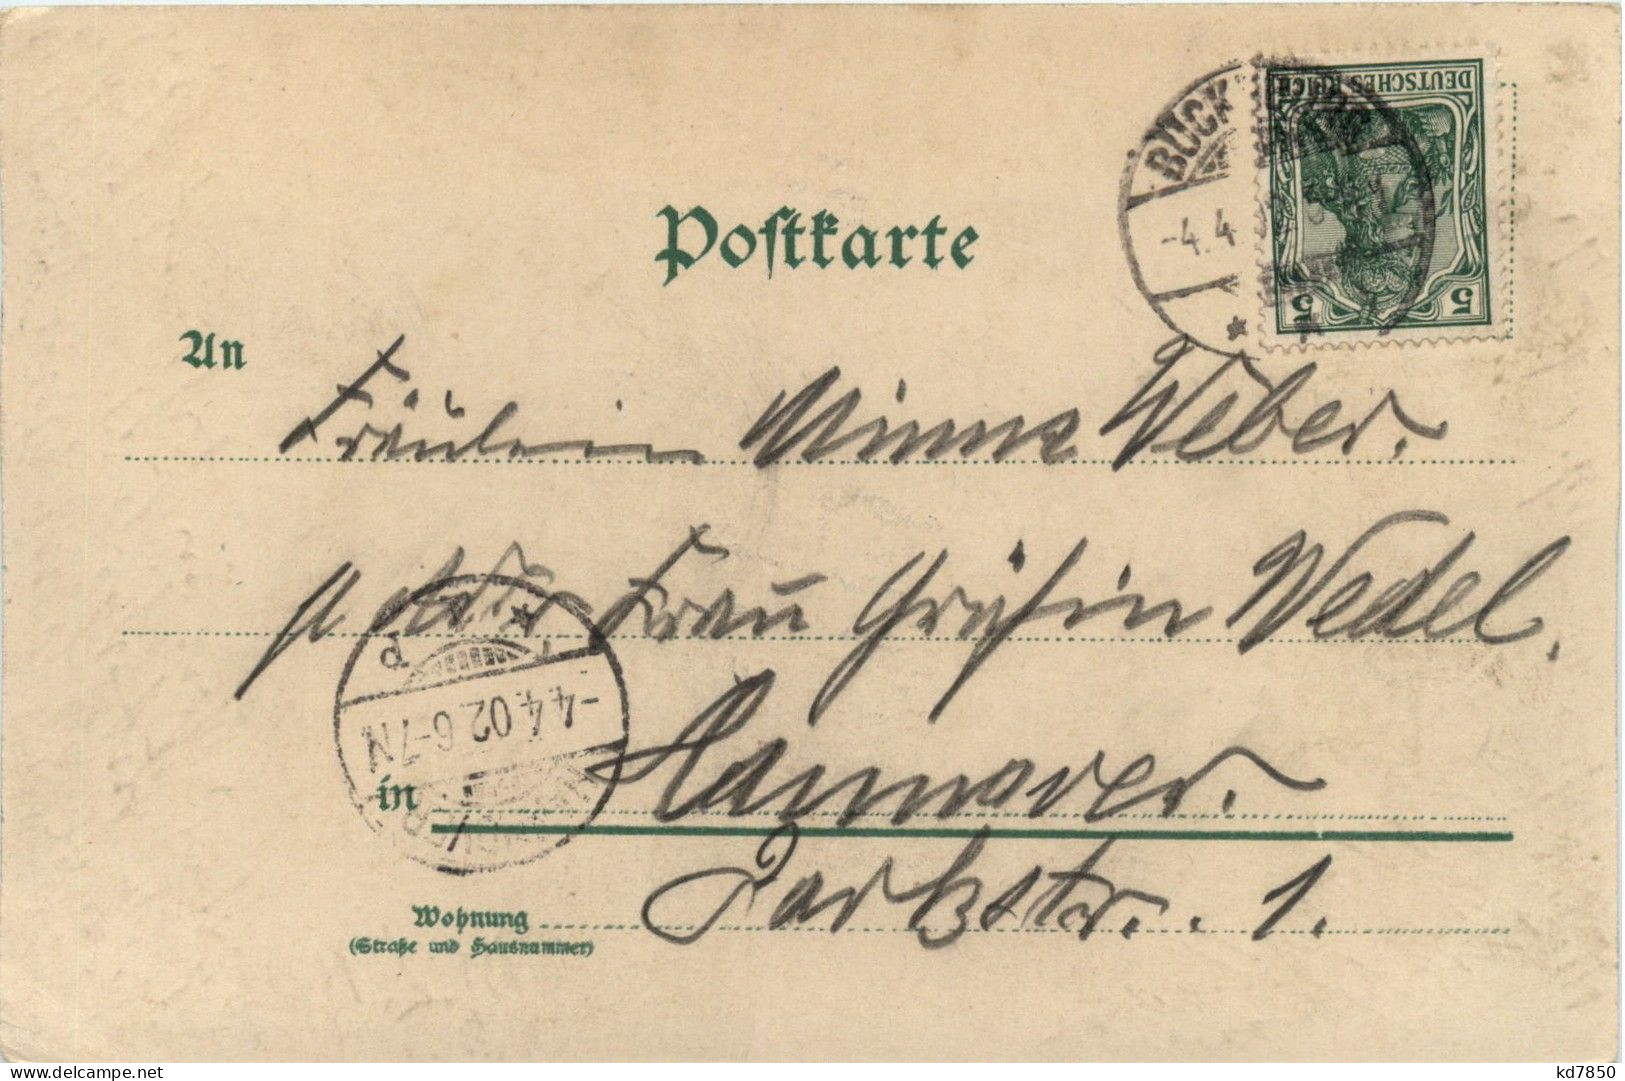 DEUTSCHES REICH
5 5
BÜCKEBURG
-4.4.02
Postkarte
An
Fräulein Minna Weber.
p. Adr. Frau Gräfin Wedel,
-4.4.02 6-7N
in Hannover.
Wohnung Parkstr. 1.
(Straße und Hausnummer)
kd7850